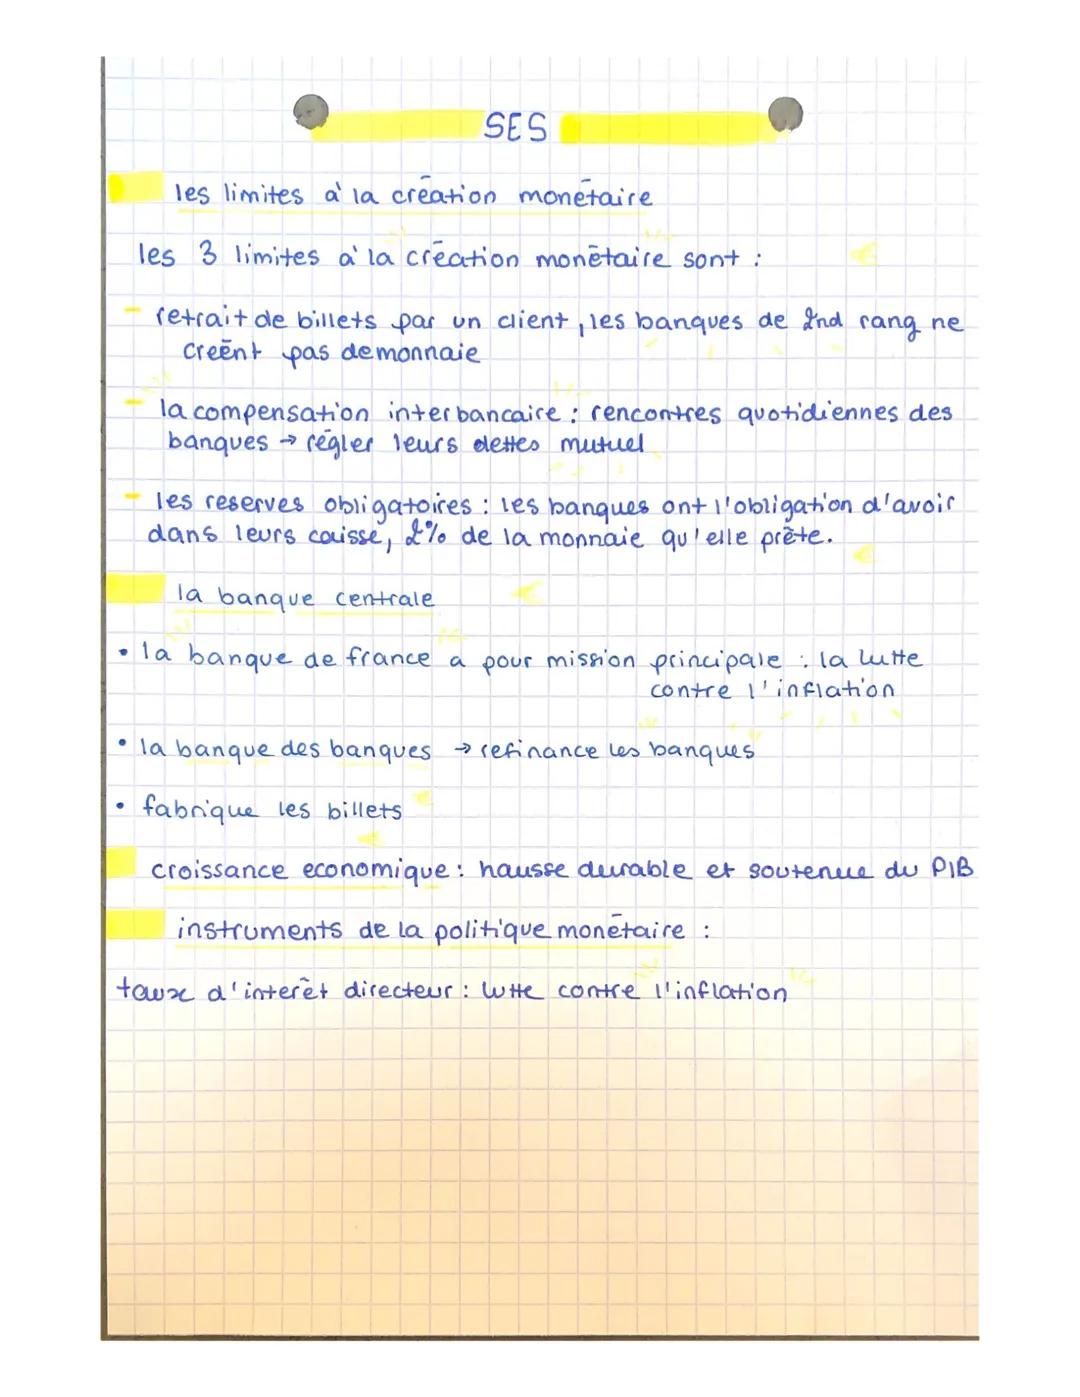 SES
les limites à la création monétaire
les 3 limites à la création monétaire sont :
- retrait de billets par un client, les banques de 2nd rang ne
creént pas de monnaie
- la compensation interbancaire : rencontres quotidiennes des
banques → régler leurs dettes mutuel
- les reserves obligatoires : les banques ont l'obligation d'avoir
dans leurs caisse, 2% de la monnaie qu'elle prête.
la banque centrale
• la banque de france a pour mission principale : la lutte
contre l'inflation
• la banque des banques → refinance les banques
• fabrique les billets
croissance economique : hausse durable et soutenue du PIB
instruments de la politique monétaire :
taux d'interêt directeur : lutte contre l'inflation